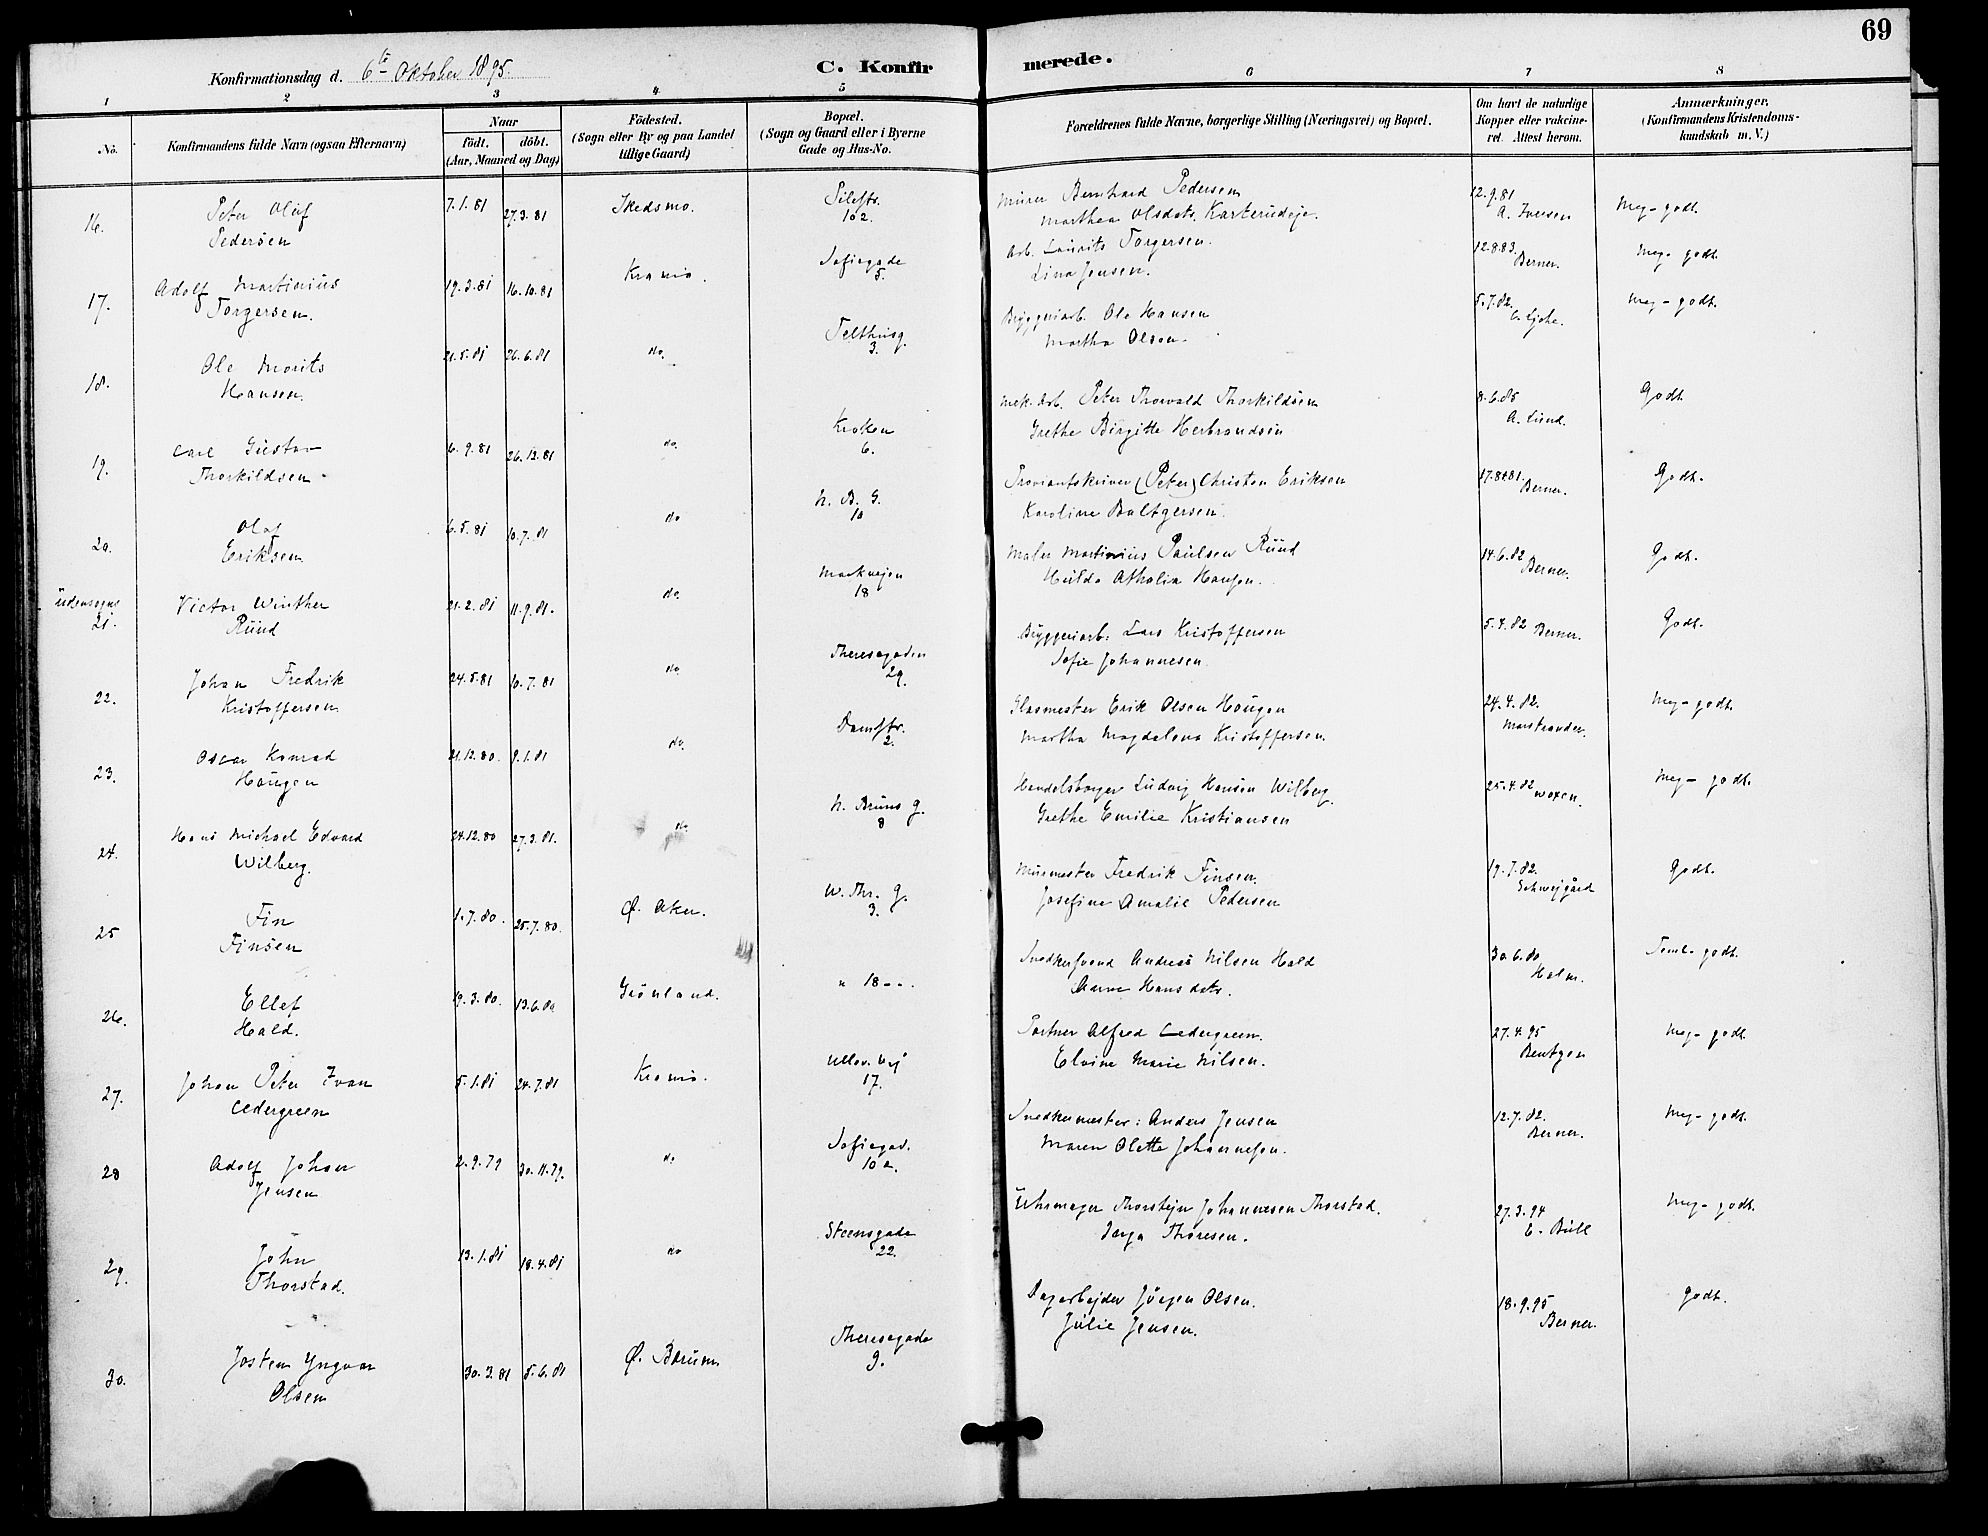 69
Konfirmationsdag d. 6te Oktober 1895.
C. Konfirmerede.
1 2 3 4 5 6 7 8
No.
Konfirmandens fulde Navn (ogsaa Efternavn)
Naar
födt. döbt.
(Aar, Maaned og Dag)
Födested.
(Sogn eller By og paa Landet
tillige Gaard)
Bopæl.
(Sogn og Gaard eller i Byerne
Gade og Hus-No.
Forældrenes fulde Navne, borgerlige Stilling (Næringsvei) og Bopæl.
Om havt de naturlige
Kopper eller vakcine-
ret. Attest herom.
Anmærkninger.
(Konfirmandens Kristendoms-
kundskab m. V.)
16. Peter Olaf
Pedersen
7.1.81 27.3.81 Skedsmo. Pilestr.
102.
Murer Bernhard Pedersen
Marthea Olsdatr.
12.9.81
A. Iversen
Meg- godt.
17. Adolf Martinius
Torgersen.
19.3.81 16.10.81 Krania. Sofiegade
5.
Arb. Laurits Torgersen.
Lina Jensen.
12.8.83.
Berner.
Meg- godt.
18. Ole Morits
Hansen.
21.5.81 26.6.81 do. Telthusg.
3.
Bryggeriarb. Ole Hansen
Martha Olsen.
5.7.82.
Meg- godt.
19. Carl Gustav
Thorkildsen
6.9.81 26.12.81 do. Kroken
6.
Mek. Arb. Peter Thorvald Thorkildsen
Grethe Birgitte Herbrandsen
8.6.85
A. Lund.
Godt.
20. Olaf
Eriksen
6.5.81 10.7.81 do N. B. G.
10
Proviantskriver (Peter) Christian Eriksen
Karoline Baltzersen
Berner.
Godt.
Udensogns
21. Victor Winther
Ruud
21.2.81 11.9.81. do. Markvejen
18
Maler Martinius Paulsen Ruud
Hulda Athalia Hansen.
14.6.82
Berner.
Godt.
22. Johan Fredrik
Kristoffersen
24.5.81 10.7.81 do Theresegaden
29.
Bryggeriarb. Lars Kristoffersen
Sofie Johannesen
5.4.82 Berner.
Godt.
23. Oscar Konrad
Haugen
21.12.80. 9.1.81 do. Damstr.
2.
Glasmester Erik Olsen Haugen
Martha Magdalena Kristoffersen.
24.4.82.
Marstrander.
Meg- godt.
24. Hans Michael Edvard
Wilberg.
24.12.80 27.3.81. do N. Bruns g.
8
Handelsborger Ludvig Hansen Wilberg
Grethe Emilie Kristiansen
25.4.82 Woxen.
Meg- godt.
25 Fin
Finsen
1.7.80. 25.7.80. Ø. Aker. W. Thr. G.
3.
Murmester Fredrik Finsen.
Josefine Amalie Pedersen
19.7.82.
Schwejgård
Godt.
26. Ellef
Hald.
19.3.80. 13.6.80 Grönland. " 18 - -.
Snedkersvend Andreas Nilsen Hald
Anne Hansdatr.
30.6.80
Holm.
Teml- godt.
27. Johan Peter Ivan
Cedergreen
5.1.81 24.7.81 Krania. Ullev. Vej
17.
Portner Alfred Cedergreen.
Elvine Marie Nilsen.
27.4.95
Bentzen
Meg- godt.
28 Adolf Johan
Jensen
2.9.79 30.11.79. do Sofiegad.
10 a.
Snedkermester: Anders Jensen
Maren Olette Johannesen.
12.7.82.
Berner.
Meg- godt.
29. John
Thorstad.
13.1.81 18.4.81 do Steensgade
22.
Uhrmager Thorstejn Johannesen Thorstad.
Thoresen.
27.3.94
E. Bull
Meg- godt.
30. Josten Yngvar
Olsen
30.3.81 5.6.81 Ø. Bærum Theresegade
9.
Dagarbejder Jörgen Olsen.
Julie Jensen.
18.9.95
Berner.
Godt.